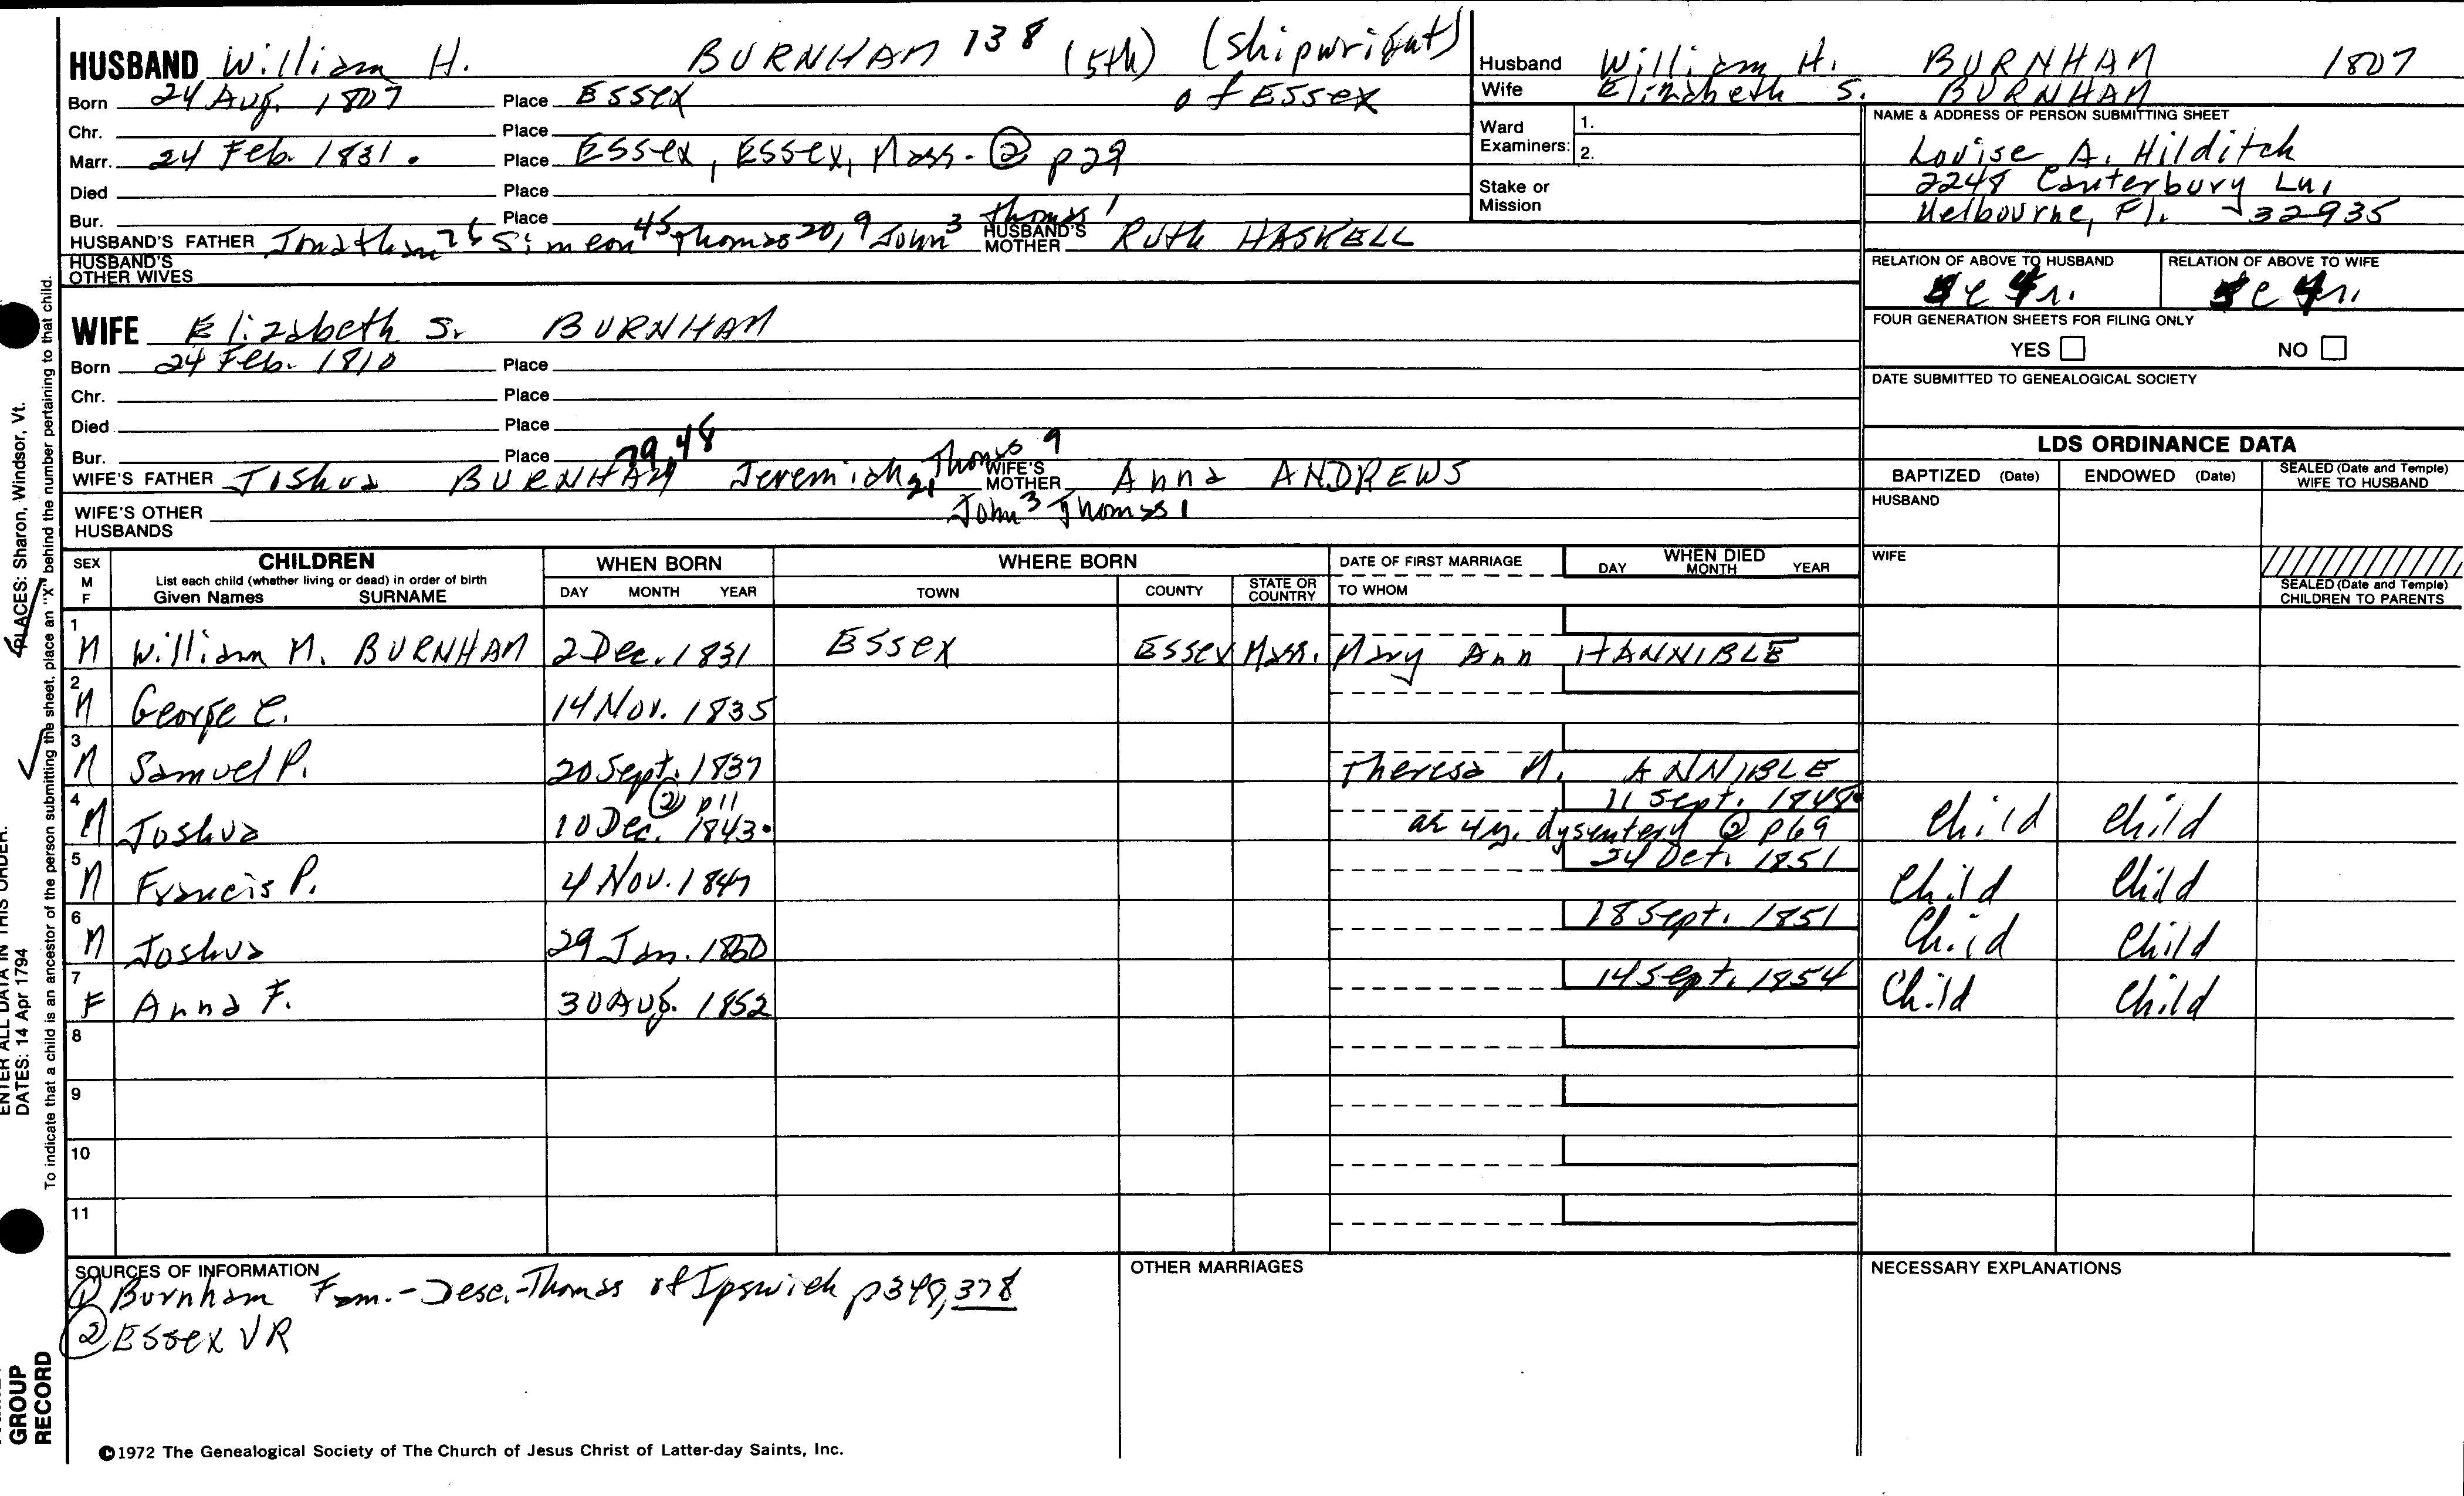 HUSBAND William H. BURNHAM 138 (5th) (shipwright)
Born 24 Aug. 1807 Place Essex of Essex
Chr. Place
Marr. 24 Feb. 1831. Place Essex, Essex, Mass. ② p29
Died Place
Bur. Place
HUSBAND'S FATHER Jonathan 76 Simeon 45 Thomas 20, 9 John 3 Thomas 1 HUSBAND'S MOTHER Ruth HASKELL
HUSBAND'S OTHER WIVES
Husband William H. BURNHAM 1807
Wife Elizabeth S. BURNHAM
Ward Examiners: 1.
2.
Stake or Mission
NAME & ADDRESS OF PERSON SUBMITTING SHEET
Louise A. Hilditch
2248 Canterbury Ln,
Melbourne, Fl. 32935
RELATION OF ABOVE TO HUSBAND RELATION OF ABOVE TO WIFE
FOUR GENERATION SHEETS FOR FILING ONLY
YES NO
DATE SUBMITTED TO GENEALOGICAL SOCIETY
WIFE Elizabeth S. BURNHAM
Born 24 Feb. 1810 Place
Chr. Place
Died Place
Bur. Place
WIFE'S FATHER Joshua BURNHAM 79, 48 Jeremiah 21 Thomas 9 WIFE'S MOTHER Anna ANDREWS
John 3 Thomas 1
WIFE'S OTHER HUSBANDS
LDS ORDINANCE DATA
BAPTIZED (Date) ENDOWED (Date) SEALED (Date and Temple) WIFE TO HUSBAND
HUSBAND
WIFE
SEALED (Date and Temple) CHILDREN TO PARENTS
SEX M F CHILDREN WHEN BORN WHERE BORN DATE OF FIRST MARRIAGE WHEN DIED
List each child (whether living or dead) in order of birth
Given Names SURNAME DAY MONTH YEAR TOWN COUNTY STATE OR COUNTRY TO WHOM DAY MONTH YEAR
1 M William M. BURNHAM 2 Dec. 1831 Essex Essex Mass. Mary Ann HANNIBLE
2 M George C. 14 Nov. 1835
3 M Samuel P. 20 Sept. 1837 Theresa M. ANNIBLE
② p11 11 Sept. 1848.
4 M Joshua 10 Dec. 1843. ae 4y. dysentery ② p69 Child Child
24 Oct. 1851
5 M Francis P. 4 Nov. 1847 Child Child
18 Sept. 1851
6 M Joshua 29 Jan. 1850 Child Child
14 Sept. 1854
7 F Anna F. 30 Aug. 1852 Child Child
8
9
10
11
SOURCES OF INFORMATION
① Burnham Fam. - Desc. - Thomas of Ipswich p348, 378
② Essex VR
OTHER MARRIAGES
NECESSARY EXPLANATIONS
©1972 The Genealogical Society of The Church of Jesus Christ of Latter-day Saints, Inc.
PLACES: Sharon, Windsor, Vt.
To indicate that a child is an ancestor of the person submitting the sheet, place an "X" behind the number pertaining to that child.
ENTER ALL DATA IN THIS ORDER:
DATES: 14 Apr 1794
GROUP
RECORD